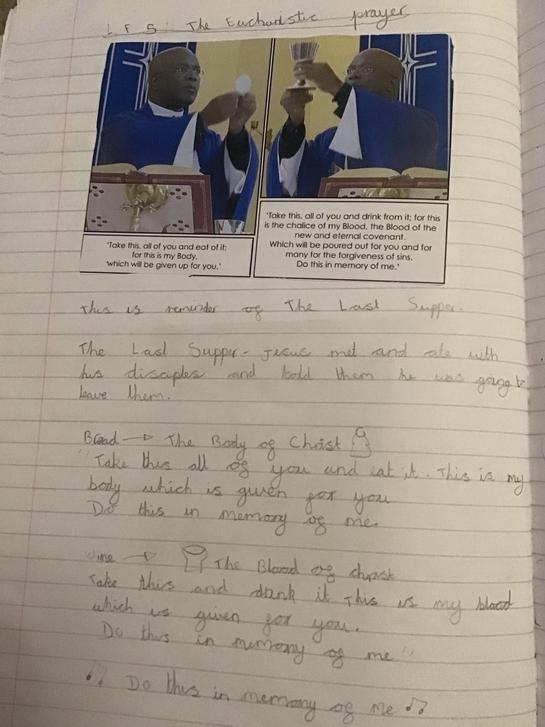 LF5: The Eucharistic prayer
'Take this, all of you and eat of it;
for this is my Body,
which will be given up for you.'
'Take this, all of you and drink from it; for this
is the chalice of my Blood, the Blood of the
new and eternal covenant.
Which will be poured out for you and for
many for the forgiveness of sins.
Do this in memory of me.'
This is reminder of The Last Supper.
The Last Supper - Jesus met and ate with
his disciples and told them he was going to
leave them.
Bread → The Body of Christ
"Take this all of you and eat it. This is my
body which is given for you
Do this in memory of me.
Wine → The Blood of christ
Take this and drink it This is my blood
which is given for you.
Do this in memory of me"
♫ Do this in memory of me ♫